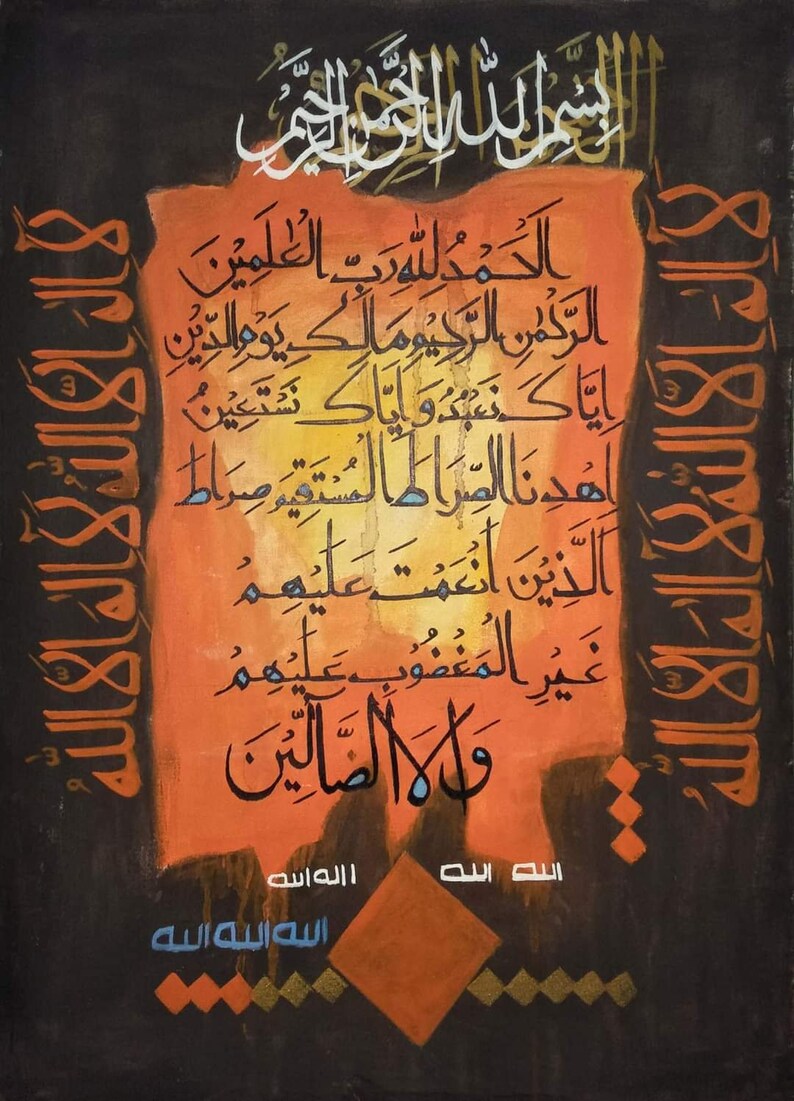 بِسْمِ اللَّهِ الرَّحْمَٰنِ الرَّحِيمِ
اَلْحَمْدُ لِلّٰهِ رَبِّ الْعٰلَمِيْنَ
الرَّحْمٰنِ الرَّحِيْمِ مَالِكِ يَوْمِ الدِّيْنِ
اِيَّاكَ نَعْبُدُ وَاِيَّاكَ نَسْتَعِيْنُ
اِهْدِنَا الصِّرَاطَ الْمُسْتَقِيْمَ صِرَاطَ
الَّذِيْنَ اَنْعَمْتَ عَلَيْهِمْ
غَيْرِ الْمَغْضُوْبِ عَلَيْهِمْ
وَلَا الضَّآلِّيْنَ
لَآ اِلٰهَ اِلَّا اللّٰهُ لَآ اِلٰهَ اِلَّا اللّٰهُ
لَآ اِلٰهَ اِلَّا اللّٰهُ لَآ اِلٰهَ اِلَّا اللّٰهُ
الله الله
الله الله الله